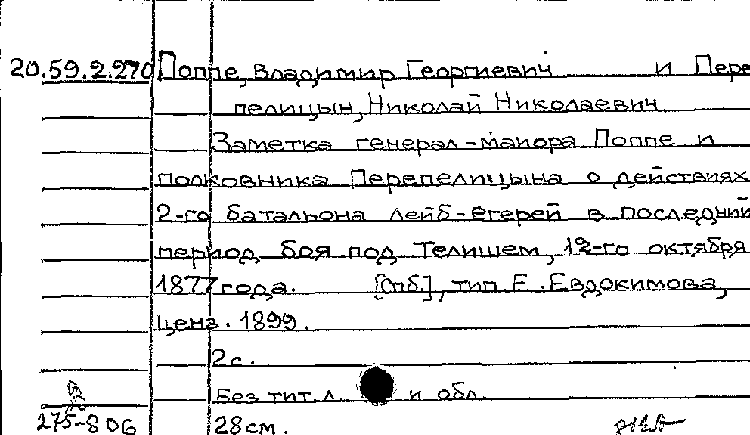 20.59.2.270 Поппе, Владимир Георгиевич и Пере
пелицын, Николай Николаевич
Заметка генерал-майора Поппе и
полковника Перепелицына о действиях
2-го батальона лейб-егерей в последний
период боя под Телишем, 12-го октября
1877 года. [Спб], тип. Е. Евдокимова,
ценз. 1899.
2 с.
Без тит. л. и обл.
275-806 28 см.